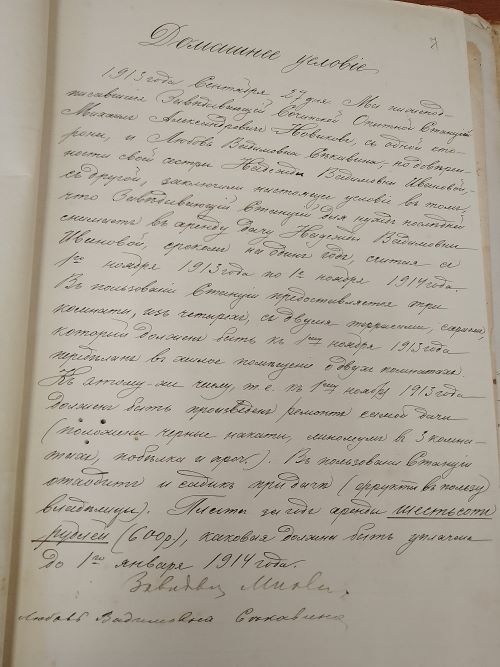 Домашнее условіе
7
1913 года Сентября 27 дня Мы нижепод-
писавшіеся Завѣдывающій Сочинской Опытной Станціей
Михаилъ Александровичъ Новиковъ, съ одной сто-
роны, и Любовь Вадимовна по довѣрен-
ности своей сестры Надежды Вадимовны Ивановой,
съ другой, заключили настоящее условіе въ томъ,
что Завѣдывающій Станціей для нуждъ послѣдней
снимаетъ въ аренду дачу Надежды Вадимовны
Ивановой, срокомъ на одинъ годъ, считая съ
1го ноября 1913 года по 1е ноября 1914 года.
Въ пользованіе Станціи предоставляется три
комнаты, изъ четырехъ, съ двумя террасами, сарай,
который долженъ быть къ 1му ноября 1913 года
передѣланъ въ жилое помѣщеніе о двухъ комнатахъ.
Къ этому-же числу, т.е. къ 1му ноября 1913 года
долженъ быть произведенъ ремонтъ самой дачи
(положены черные накаты, линолеумъ въ 3 комна-
тахъ, побѣлка и проч.). Въ пользованіе Станціи
отходитъ и садикъ при дачѣ (фрукты въ пользу
владѣлицы). Плата за годъ аренды шестьсотъ
рублей (600р), каковая должна быть уплачена
до 1го января 1914 года.
Любовь Вадимовна